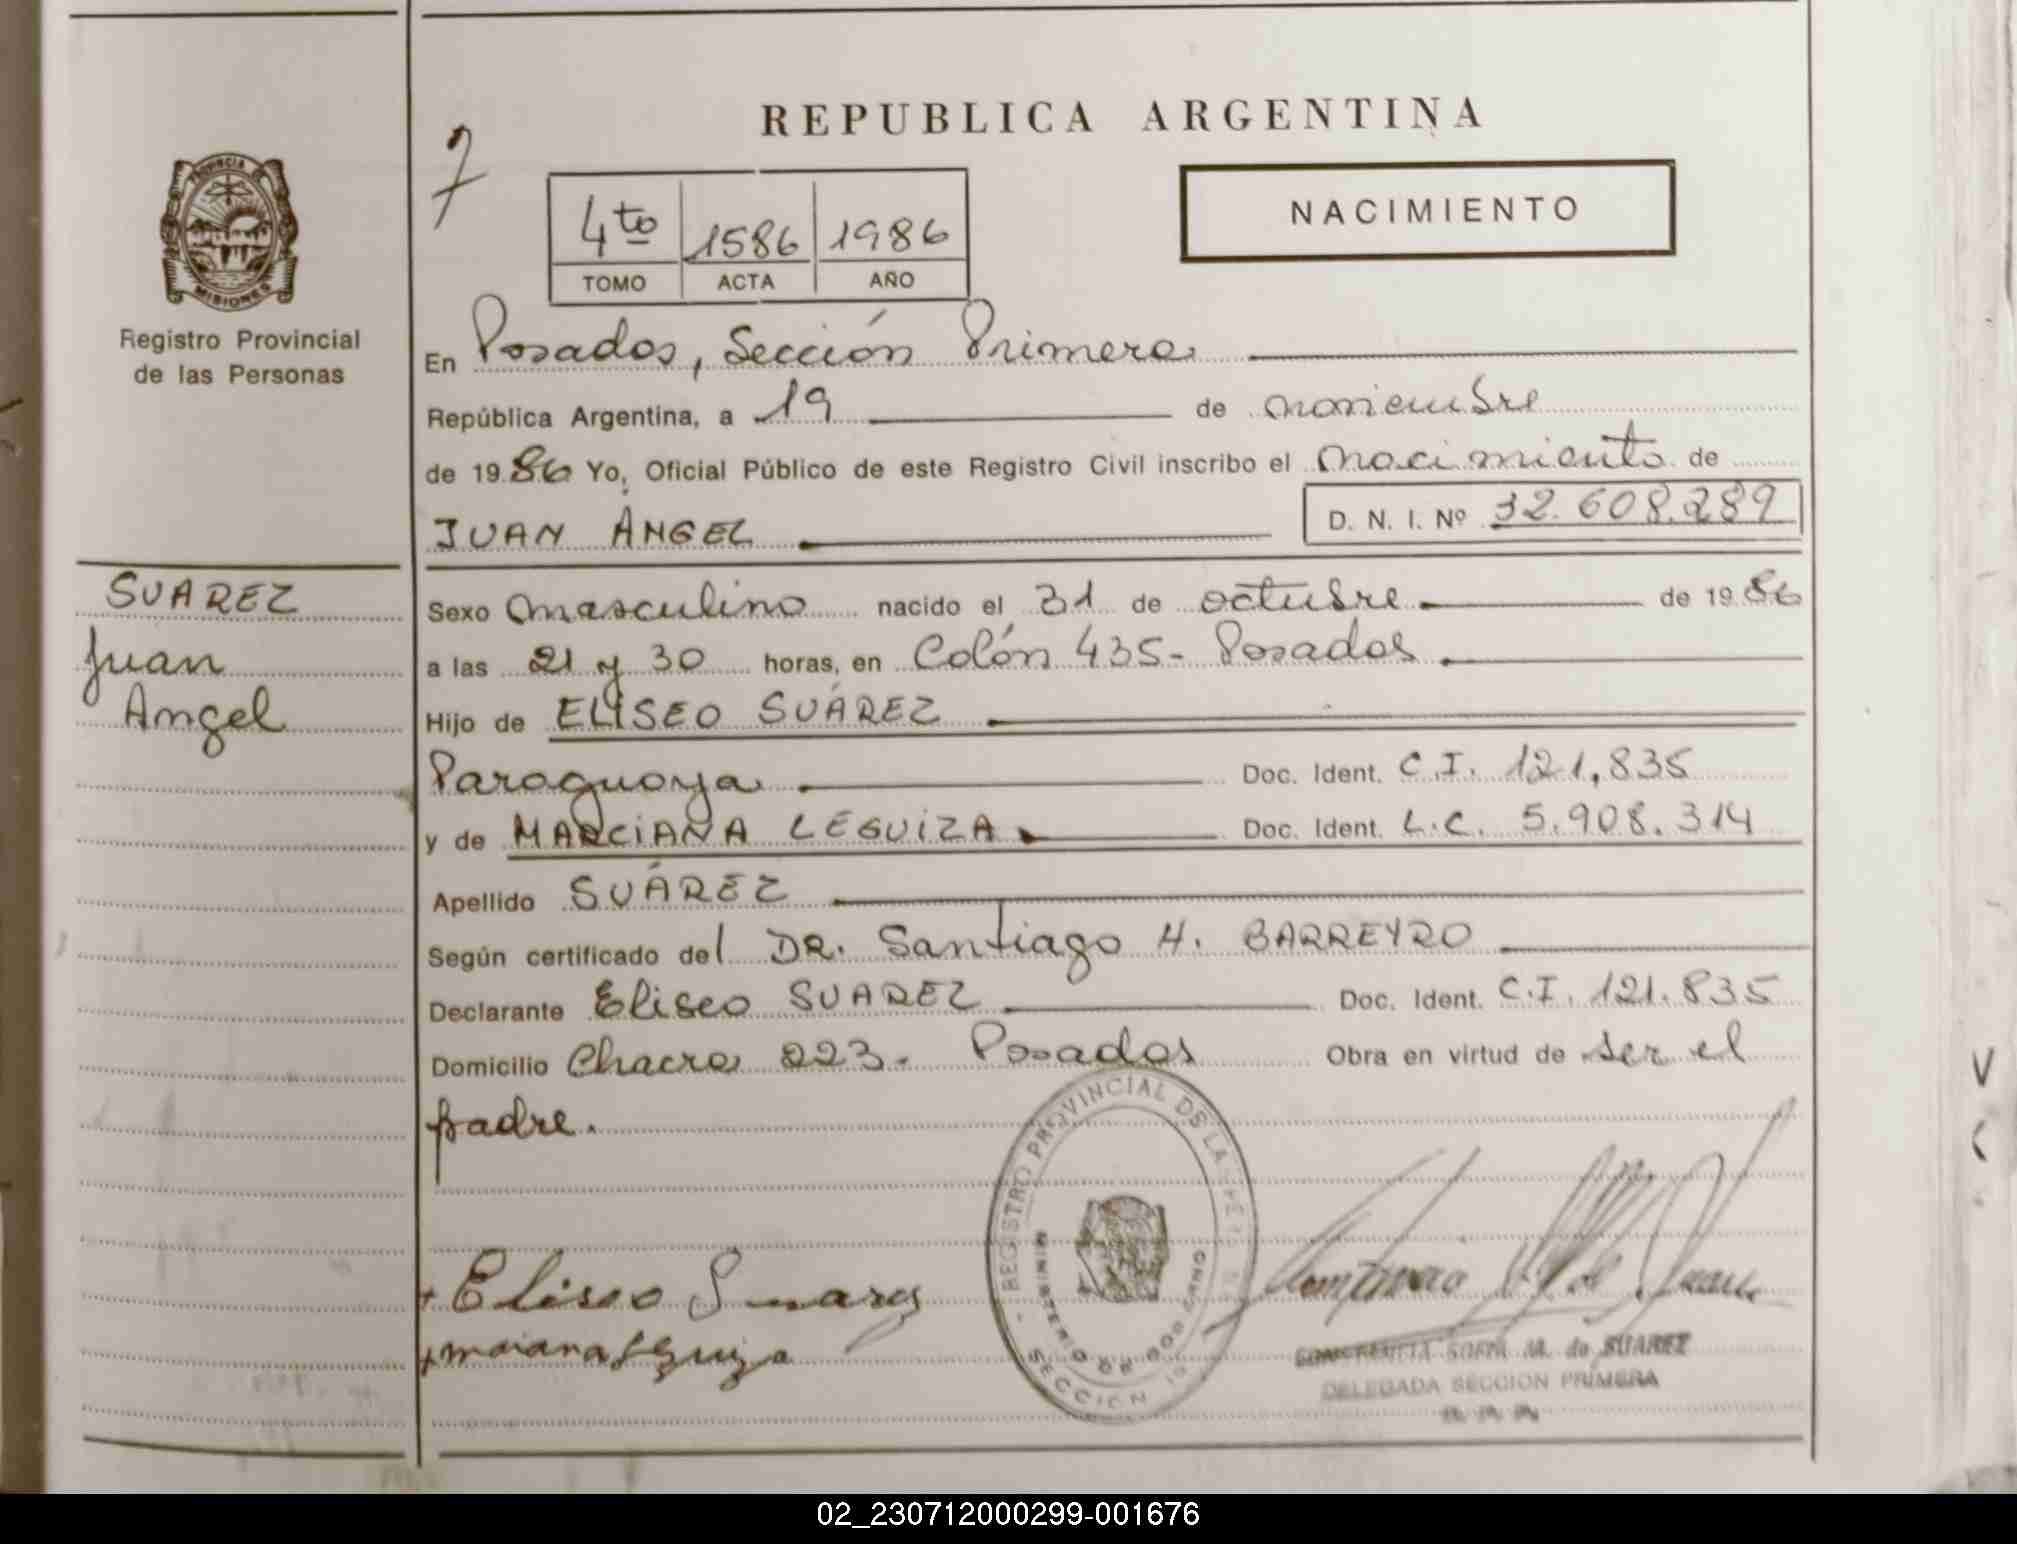 REPUBLICA ARGENTINA
7
4to 1586 1986
TOMO ACTA AÑO
NACIMIENTO
PROVINCIA DE
MISIONES
Registro Provincial
de las Personas
En Posadas, Sección Primera
República Argentina, a 19 de noviembre
de 1986 Yo, Oficial Público de este Registro Civil inscribo el nacimiento de
JUAN ÁNGEL D. N. I. Nº 32.608.289
SUAREZ
Juan
Angel
Sexo masculino nacido el 31 de octubre de 1986
a las 21 y 30 horas, en Colón 435- Posadas
Hijo de ELISEO SUÁREZ
Paraguaya Doc. Ident. C.I. 121,835
y de MARCIANA LEGUIZA Doc. Ident. L.C. 5.908.314
Apellido SUÁREZ
Según certificado del DR. Santiago H. BARREYRO
Declarante Eliseo SUAREZ Doc. Ident. C.I. 121.835
Domicilio Chacra 223- Posadas Obra en virtud de ser el
padre.
REGISTRO PROVINCIAL DE LAS
MINISTERIO DE GOBIERNO
SECCION 1º
Eliseo Suarez
SOFIA M. de SUAREZ
DELEGADA SECCION PRIMERA
02_230712000299-001676